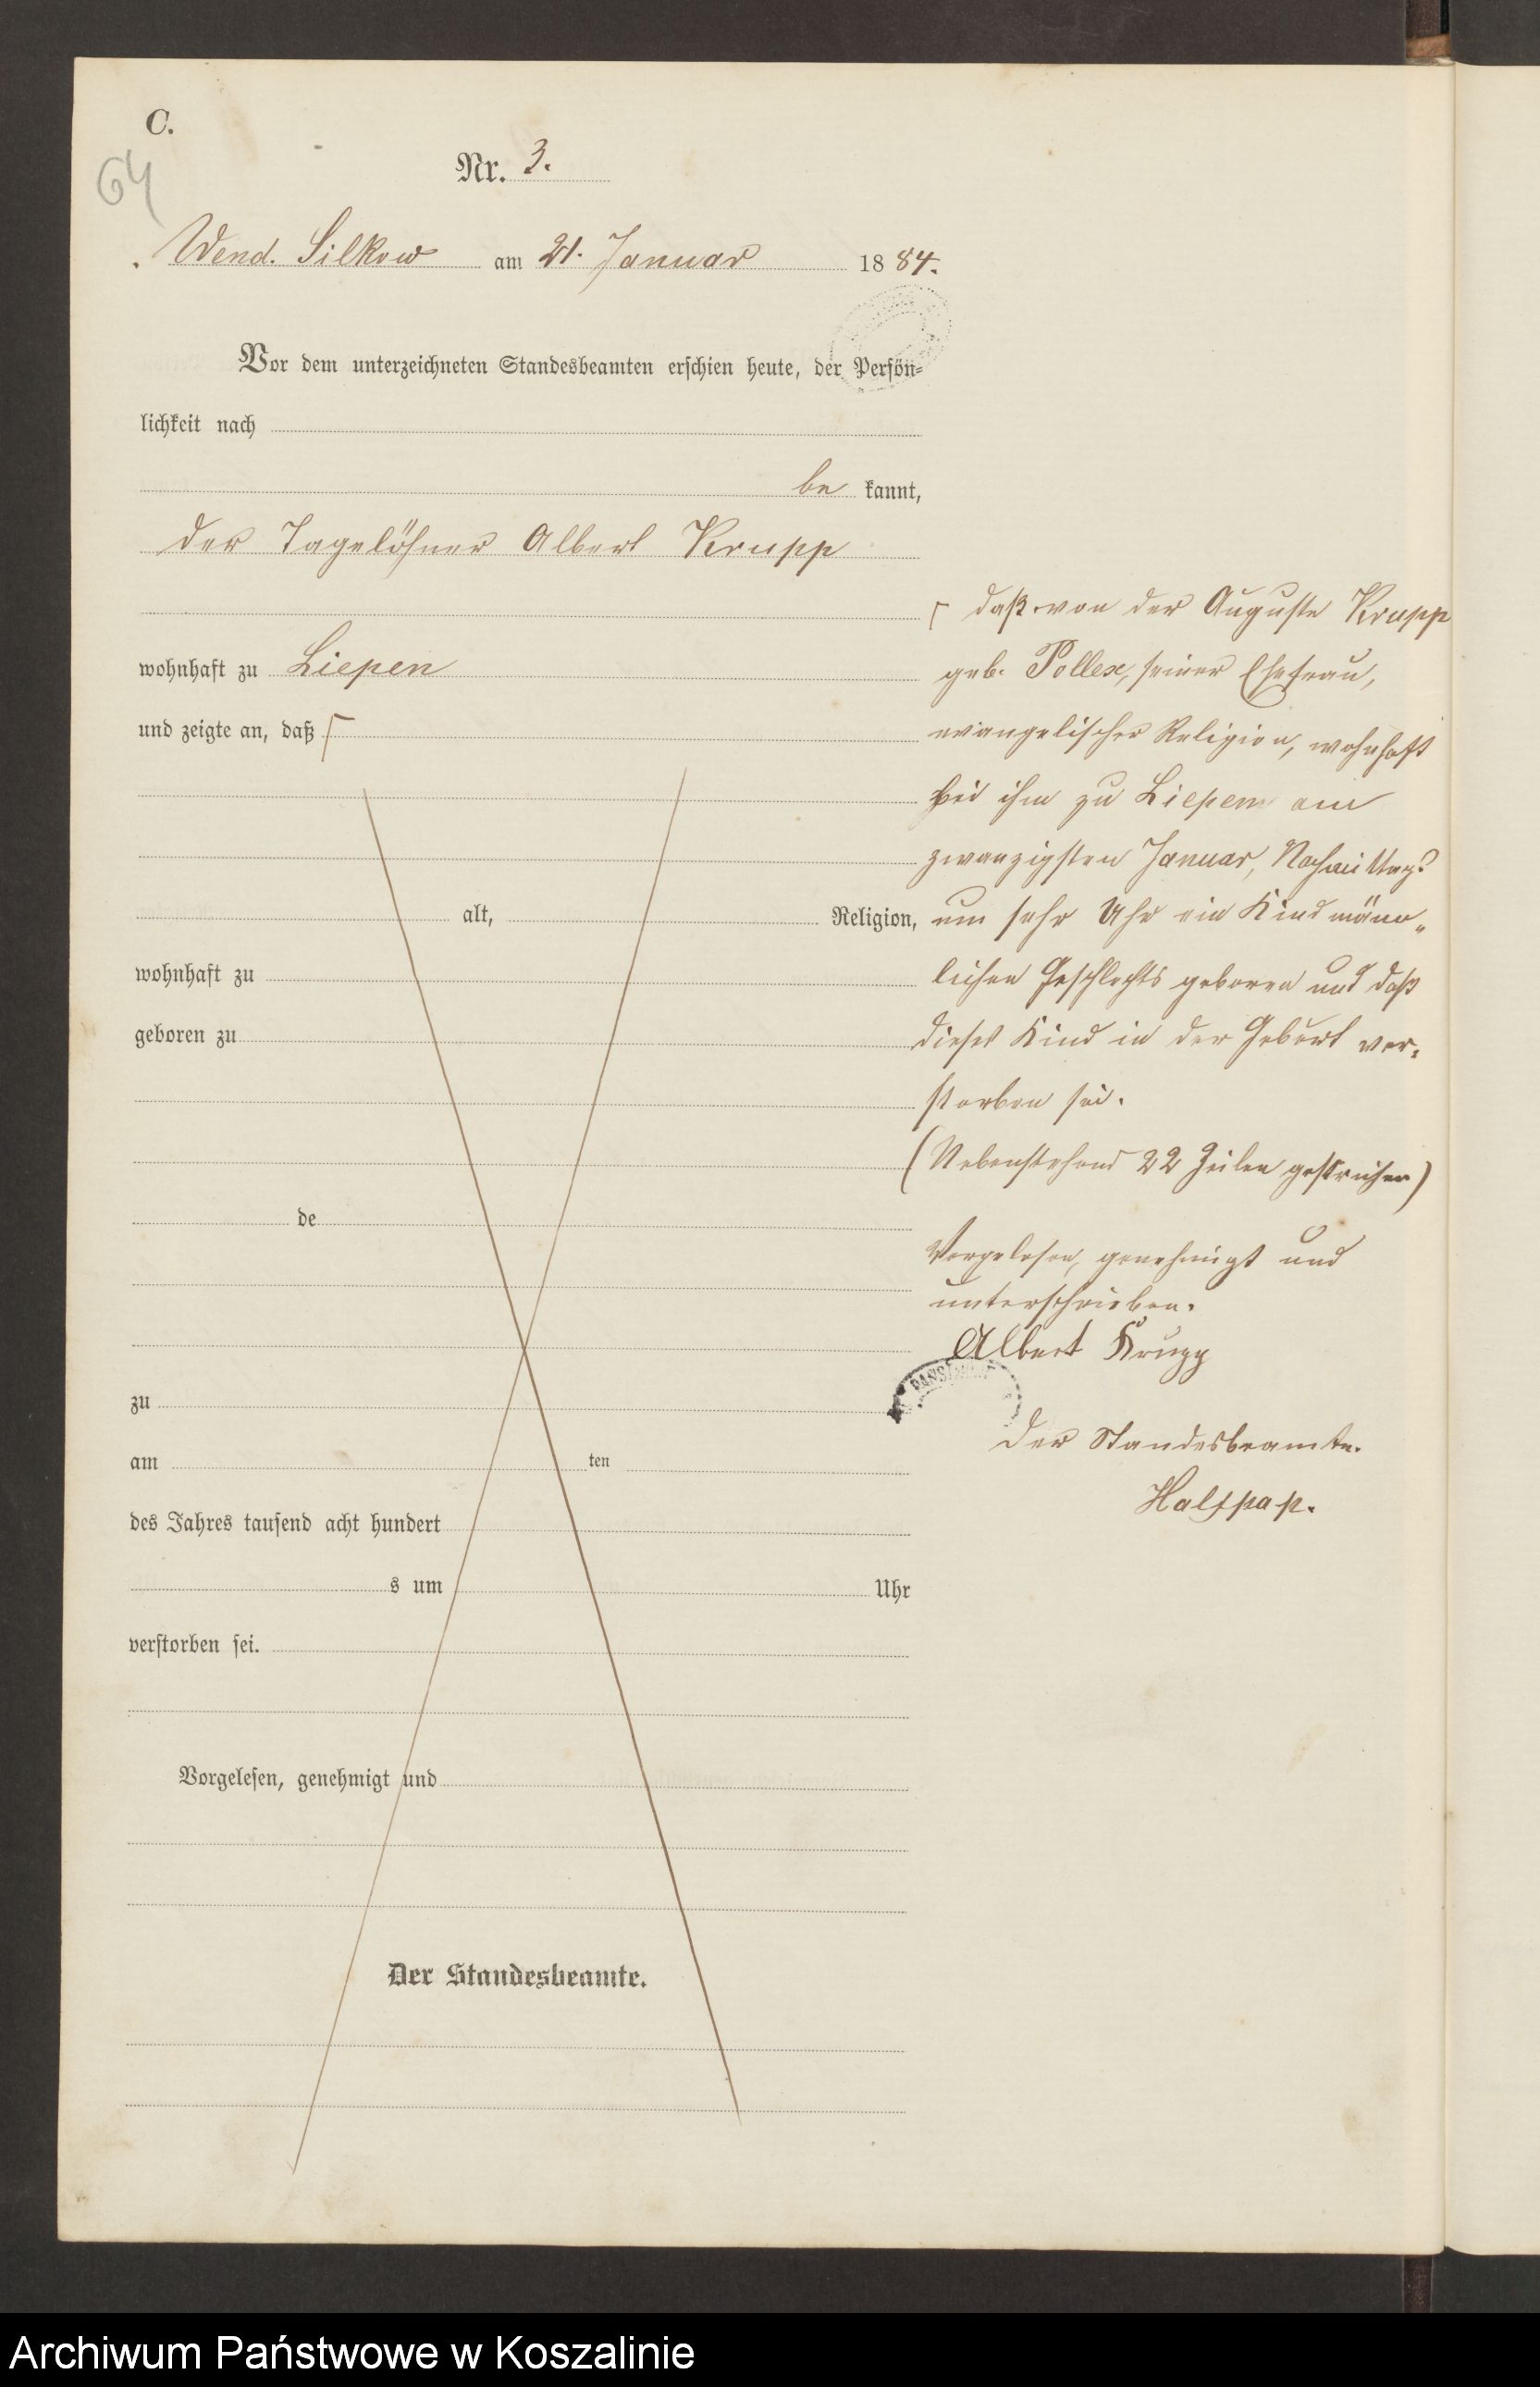 C.
64
Nr. 3.
Wend. Silkow am 21. Januar 1884.
Vor dem unterzeichneten Standesbeamten erschien heute, der Persön=
lichkeit nach
be kannt,
der Tagelöhner Albert Krupp
wohnhaft zu Liepen
und zeigte an, daß ┌
alt, Religion,
wohnhaft zu
geboren zu
de
zu
am ten
des Jahres tausend acht hundert
s um Uhr
verstorben sei.
Vorgelesen, genehmigt und
Der Standesbeamte.
┌ daß von der Auguste Krupp
geb. Pollex, seiner Ehefrau,
evangelischer Religion, wohnhaft
bei ihm zu Liepen am
zwanzigsten Januar, Nachmittags
um sechs Uhr ein Kind männ„
lichen Geschlechts geboren und daß
dieses Kind in der Geburt ver=
storben sei.
(Nebenstehend 22 Zeilen gestrichen)
Vorgelesen, genehmigt und
unterschrieben.
Albert Krupp
Der Standesbeamte.
Halfpap.
Archiwum Państwowe w Koszalinie